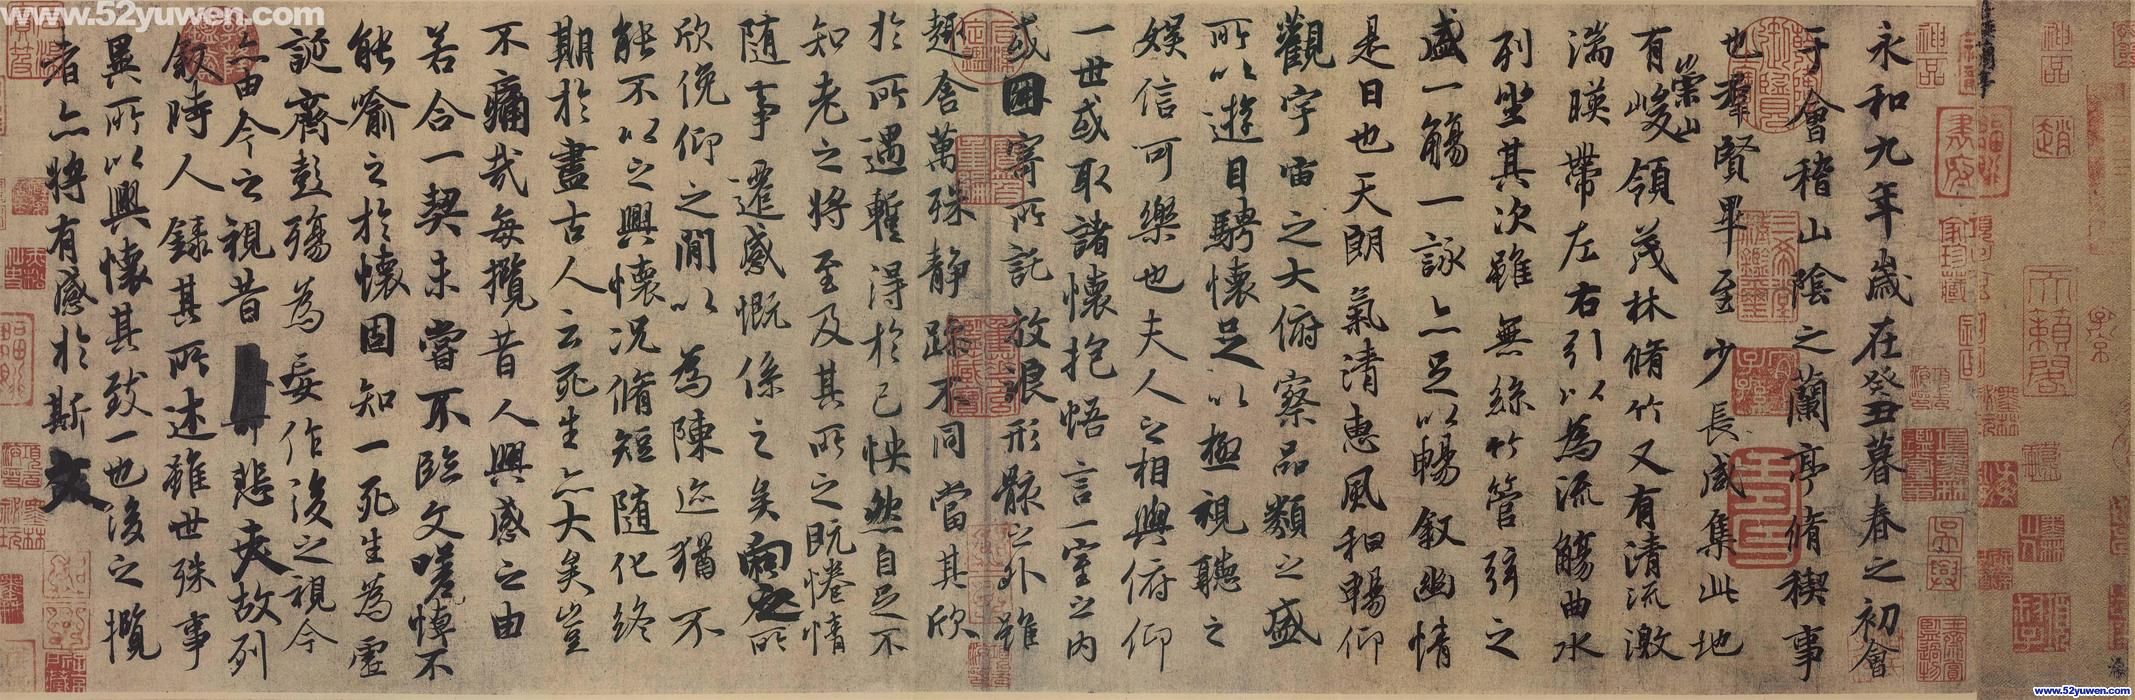 www.52yuwen.com
永和九年歲在癸丑暮春之初會
于會稽山陰之蘭亭脩稧事
也羣賢畢至少長咸集此地
有崇山峻領茂林脩竹又有清流激
湍暎帶左右引以為流觴曲水
列坐其次雖無絲竹管弦之
盛一觴一詠亦足以暢敘幽情
是日也天朗氣清惠風和暢仰
觀宇宙之大俯察品類之盛
所以遊目騁懷足以極視聽之
娛信可樂也夫人之相與俯仰
一世或取諸懷抱悟言一室之內
或因寄所託放浪形骸之外雖
趣舍萬殊靜躁不同當其欣
於所遇暫得於己怏然自足不
知老之將至及其所之既惓情
隨事遷感慨係之矣向之所
欣俛仰之閒以為陳迹猶不
能不以之興懷況脩短隨化終
期於盡古人云死生亦大矣豈
不痛哉每攬昔人興感之由
若合一契未嘗不臨文嗟悼不
能喻之於懷固知一死生為虛
誕齊彭殤為妄作後之視今
亦由今之視昔悲夫故列
敘時人錄其所述雖世殊事
異所以興懷其致一也後之攬
者亦將有感於斯文
www.52yuwen.com